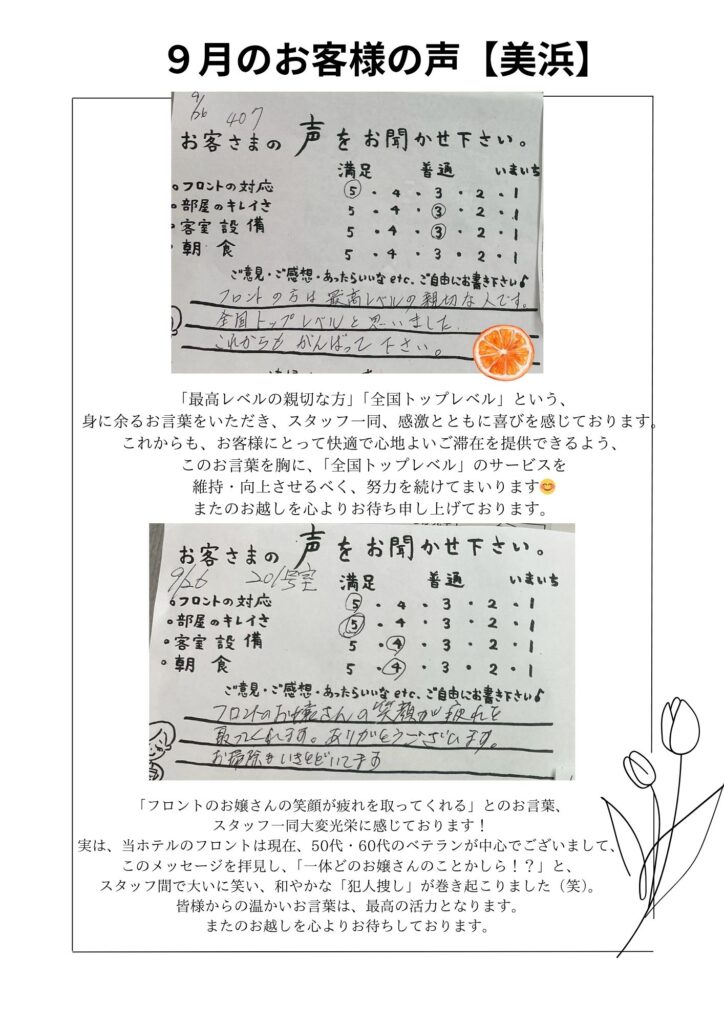 ９月のお客様の声【美浜】
9/26 407
お客さまの 声 をお聞かせ下さい。
満足 普通 いまいち
。フロントの対応 5・4・3・2・1
。部屋のキレイさ 5・4・3・2・1
・客室設備 5・4・3・2・1
・朝食 5・4・3・2・1
ご意見・ご感想・あったらいいなetc、ご自由にお書き下さい♪
フロントの方は最高レベルの親切な人です。
全国トップレベルと思いました
これからもがんばって下さい。
「最高レベルの親切な方」「全国トップレベル」という、
身に余るお言葉をいただき、スタッフ一同、感激とともに喜びを感じております。
これからも、お客様にとって快適で心地よいご滞在を提供できるよう、
このお言葉を胸に、「全国トップレベル」のサービスを
維持・向上させるべく、努力を続けてまいります😊
またのお越しを心よりお待ち申し上げております。
お客さまの 声 をお聞かせ下さい。
9/26 201号室
満足 普通 いまいち
。フロントの対応 5・4・3・2・1
・部屋のキレイさ 5・4・3・2・1
・客室設備 5・4・3・2・1
・朝食 5・4・3・2・1
ご意見・ご感想・あったらいいなetc、ご自由にお書き下さい♪
フロントのお嬢さんの笑顔が疲れを
取ってくれます。ありがとうございます。
お掃除もいきとどいてます
「フロントのお嬢さんの笑顔が疲れを取ってくれる」とのお言葉、
スタッフ一同大変光栄に感じております！
実は、当ホテルのフロントは現在、50代・60代のベテランが中心でございまして、
このメッセージを拝見し、「一体どのお嬢さんのことかしら！？」と、
スタッフ間で大いに笑い、和やかな「犯人捜し」が巻き起こりました（笑）。
皆様からの温かいお言葉は、最高の活力となります。
またのお越しを心よりお待ちしております。